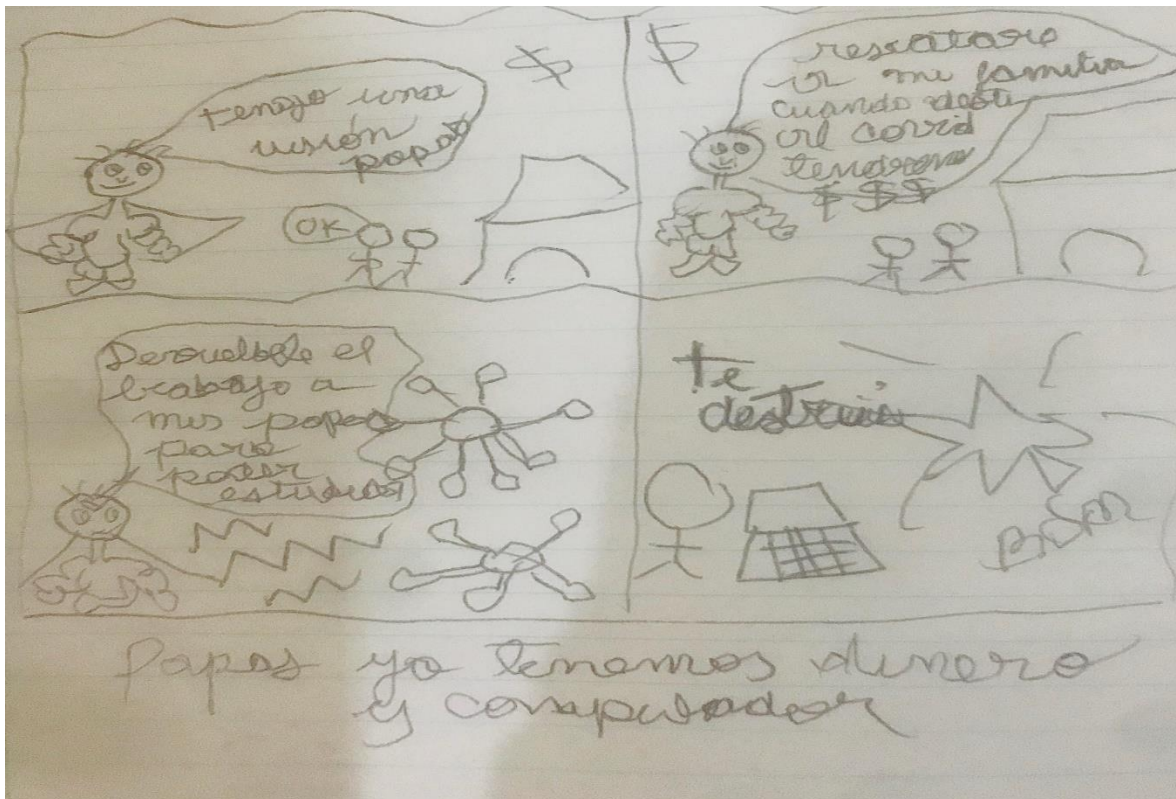 $
tengo una
visión
papás
OK
$
rescatare
a mi familia
cuando
al covid
$ $$
Devuelbele el
trabajo a
mis papas
para
poder
estudiar
te
destruire
BUM
Papas ya tenemos dinero
y computador